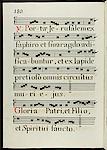 180
V. Portæ Jerusalem ex
sapphiro et smaragdo ædi-
ficabuntur, et ex lapide
pretioso omnis circuitus
muri ejus.
Gloria Patri, et Filio,
et Spiritui sancto.